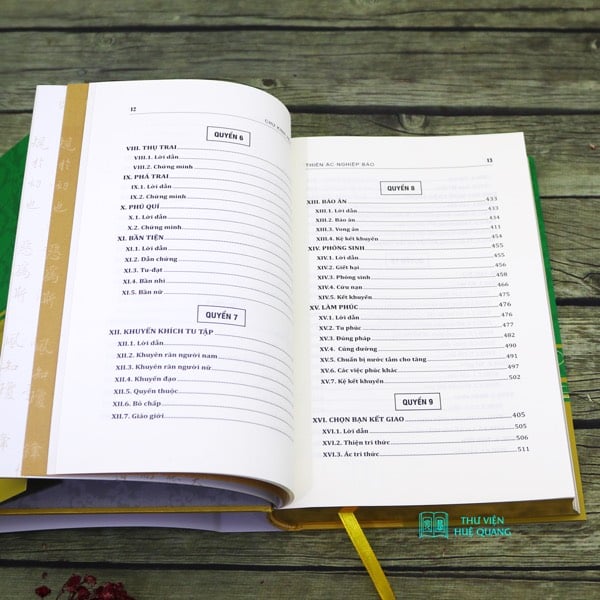 12
QUYỂN 6
VIII. THỤ TRAI
VIII.1. Lời dẫn
VIII.2. Chứng minh
IX. PHÁ TRAI
IX.1. Lời dẫn
IX.2. Chứng minh
X. PHÚ QUÍ
X.1. Lời dẫn
X.2. Chứng minh
XI. BẦN TIỆN
XI.1. Lời dẫn
XI.2. Dẫn chứng
XI.3. Tu-đạt
XI.4. Bần nhi
XI.5. Bần nữ
QUYỂN 7
XII. KHUYẾN KHÍCH TU TẬP
XII.1. Lời dẫn
XII.2. Khuyên răn người nam
XII.3. Khuyên răn người nữ
XII.4. Khuyến đạo
XII.5. Quyến thuộc
XII.6. Bỏ chấp
XII.7. Giáo giới
THIỆN ÁC NGHIỆP BÁO
13
QUYỂN 8
XIII. BÁO ÂN 433
XIII.1. Lời dẫn 433
XIII.2. Báo ân 434
XIII.3. Vong ân 411
XIII.4. Kệ kết khuyên 454
XIV. PHÓNG SINH 455
XIV.1. Lời dẫn 455
XIV.2. Giết hại 456
XIV.3. Phóng sinh 458
XIV.4. Cứu nạn 476
XIV.5. Kết khuyên 475
XV. LÀM PHÚC 476
XV.1. Lời dẫn 476
XV.2. Tu phúc 476
XV.3. Đúng pháp 485
XV.4. Cúng dường 490
XV.5. Chuẩn bị nước tắm cho tăng 491
XV.6. Các việc phúc khác 497
XV.7. Kệ kết khuyên 502
QUYỂN 9
XVI. CHỌN BẠN KẾT GIAO 405
XVI.1. Lời dẫn 505
XVI.2. Thiện tri thức 506
XVI.3. Ác tri thức 511
THƯ VIỆN
HUỆ QUANG